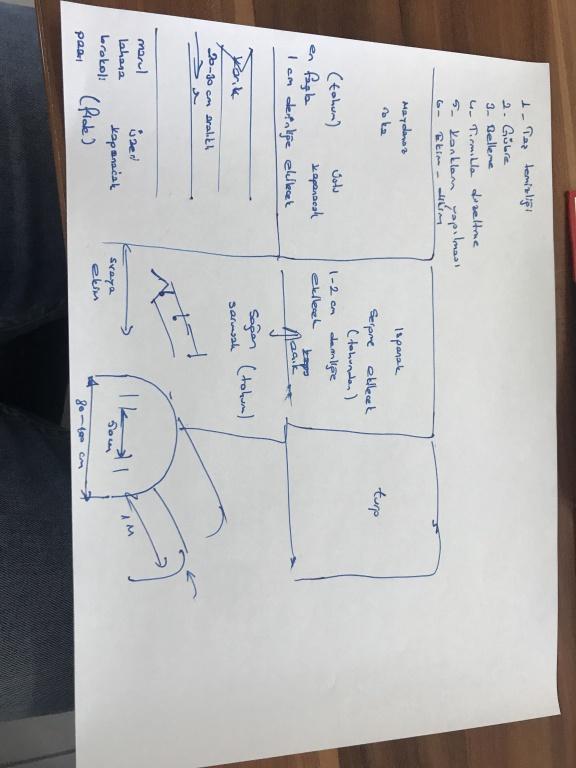 1- Taş temizliği
2. Gübre
3- Belleme
4- Tırmıkla düzeltme
5- Karıkların yapılması
6- Ekim - dikim
Maydanoz
roka
(tohum)
üstü kapanacak
en fazla
1 cm derinliğe ekilecek
Karık
20-30 cm aralıklı
marul
lahana
brokoli
pazı
(fide)
üzeri
kapanacak
Ispanak
Serpme ekilecek
(tohumdan)
1-2 cm derinliğe
ekilecek
Soğan
sarımsak
(tohum)
sıraya
ekim
turp
50 cm
80-100 cm
1 M